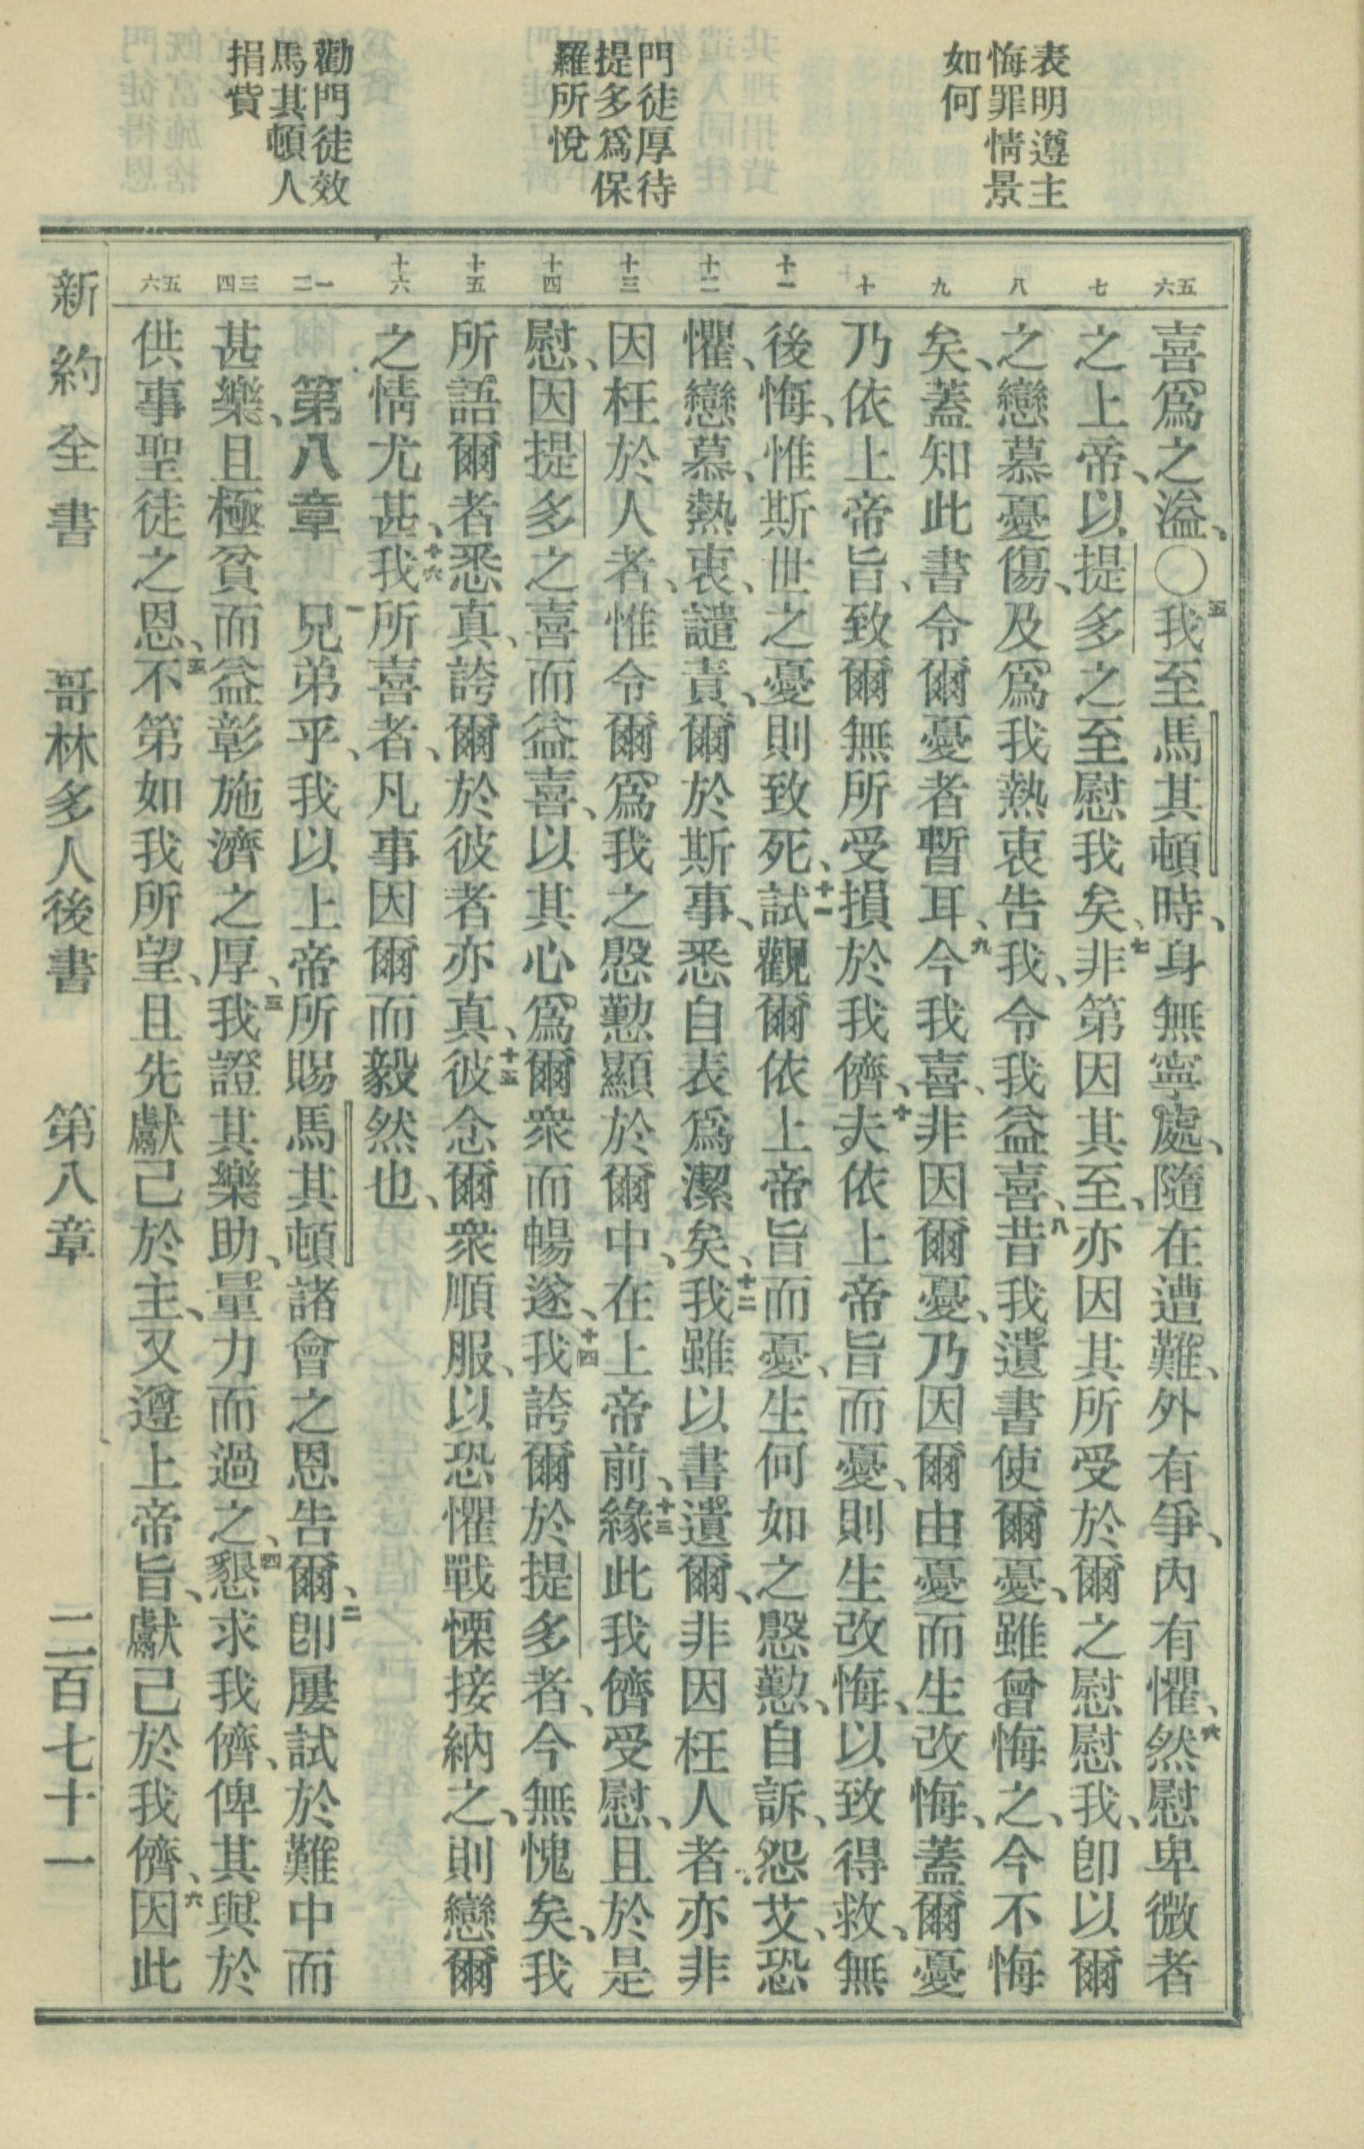 表明遵主
悔罪情景
如何
門徒厚待
提多爲保
羅所悅
勸門徒效
馬其頓人
捐貲
五六
七
八
九
十
十一
十二
十三
十四
十五
十六
一二
三四
五六
喜爲之溢、〇五我至馬其頓時、身無寧處、隨在遭難、外有爭、內有懼、六然慰卑微者
之上帝、以提多之至慰我矣、七非第因其至、亦因其所受於爾之慰慰我、卽以爾
之戀慕憂傷、及爲我熱衷告我、令我益喜、八昔我遺書使爾憂、雖曾悔之、今不悔
矣、蓋知此書令爾憂者暫耳、九今我喜、非因爾憂、乃因爾由憂而生改悔、蓋爾憂
乃依上帝旨、致爾無所受損於我儕、十夫依上帝旨而憂、則生改悔、以致得救、無
後悔、惟斯世之憂則致死、十一試觀爾依上帝旨而憂、生何如之慇懃、自訴、怨艾、恐
懼、戀慕、熱衷、譴責、爾於斯事、悉自表爲潔矣、十二我雖以書遺爾、非因枉人者、亦非
因枉於人者、惟令爾爲我之慇懃顯於爾中、在上帝前、十三緣此我儕受慰、且於是
慰、因提多之喜而益喜、以其心爲爾衆而暢遂、十四我誇爾於提多者、今無愧矣、我
所語爾者悉眞、誇爾於彼者亦眞、十五彼念爾衆順服、以恐懼戰慄接納之、則戀爾
之情尤甚、十六我所喜者、凡事因爾而毅然也、
第八章 一兄弟乎、我以上帝所賜馬其頓諸會之恩告爾、二卽屢試於難中而
甚樂、且極貧而益彰施濟之厚、三我證其樂助、量力而過之、四懇求我儕、俾其與於
供事聖徒之恩、五不第如我所望、且先獻己於主、又遵上帝旨、獻己於我儕、六因此
新約全書 哥林多人後書 第八章 二百七十一